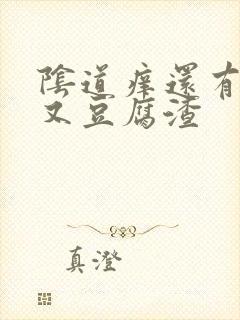 陰道痒還有
又豆腐渣
真澄